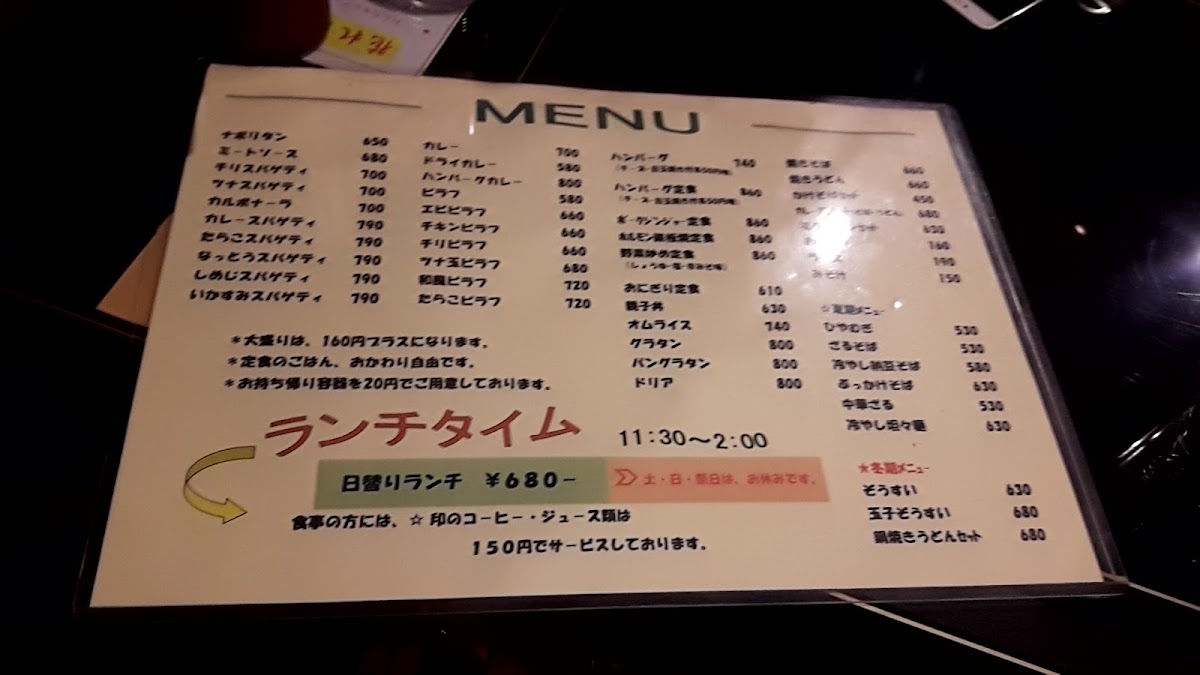 MENU
ナポリタン 650
ミートソース 680
チリスパゲティ 700
ツナスパゲティ 700
カルボナーラ 700
カレースパゲティ 790
たらこスパゲティ 790
なっとうスパゲティ 790
しめじスパゲティ 790
いかすみスパゲティ 790
カレー 700
ドライカレー 580
ハンバーグカレー 800
ピラフ 580
エビピラフ 660
チキンピラフ 660
チリピラフ 660
ツナ玉ピラフ 680
和風ピラフ 720
たらこピラフ 720
ハンバーグ 740
(チーズ・目玉焼き付き50円増)
ハンバーグ定食 860
(チーズ・目玉焼き付き50円増)
ポークジンジャー定食 860
ホルモン鉄板焼定食 860
野菜炒め定食 860
(しょうゆ・塩・辛みそ味)
おにぎり定食 610
親子丼 630
オムライス 740
グラタン 800
パングラタン 800
ドリア 800
焼きそば 660
焼きうどん 660
かけそばセット 450
680
630
160
190
みそ汁 150
☆夏期メニュー
ひやむぎ 530
ざるそば 530
冷やし納豆そば 580
ぶっかけそば 630
中華ざる 530
冷やし坦々麺 630
★冬期メニュー
ぞうすい 630
玉子ぞうすい 680
鍋焼きうどんセット 680
*大盛りは、160円プラスになります。
*定食のごはん、おかわり自由です。
*お持ち帰り容器を20円でご用意しております。
ランチタイム 11:30~2:00
日替りランチ ¥680-
土・日・祭日は、お休みです。
食事の方には、☆印のコーヒー・ジュース類は
150円でサービスしております。